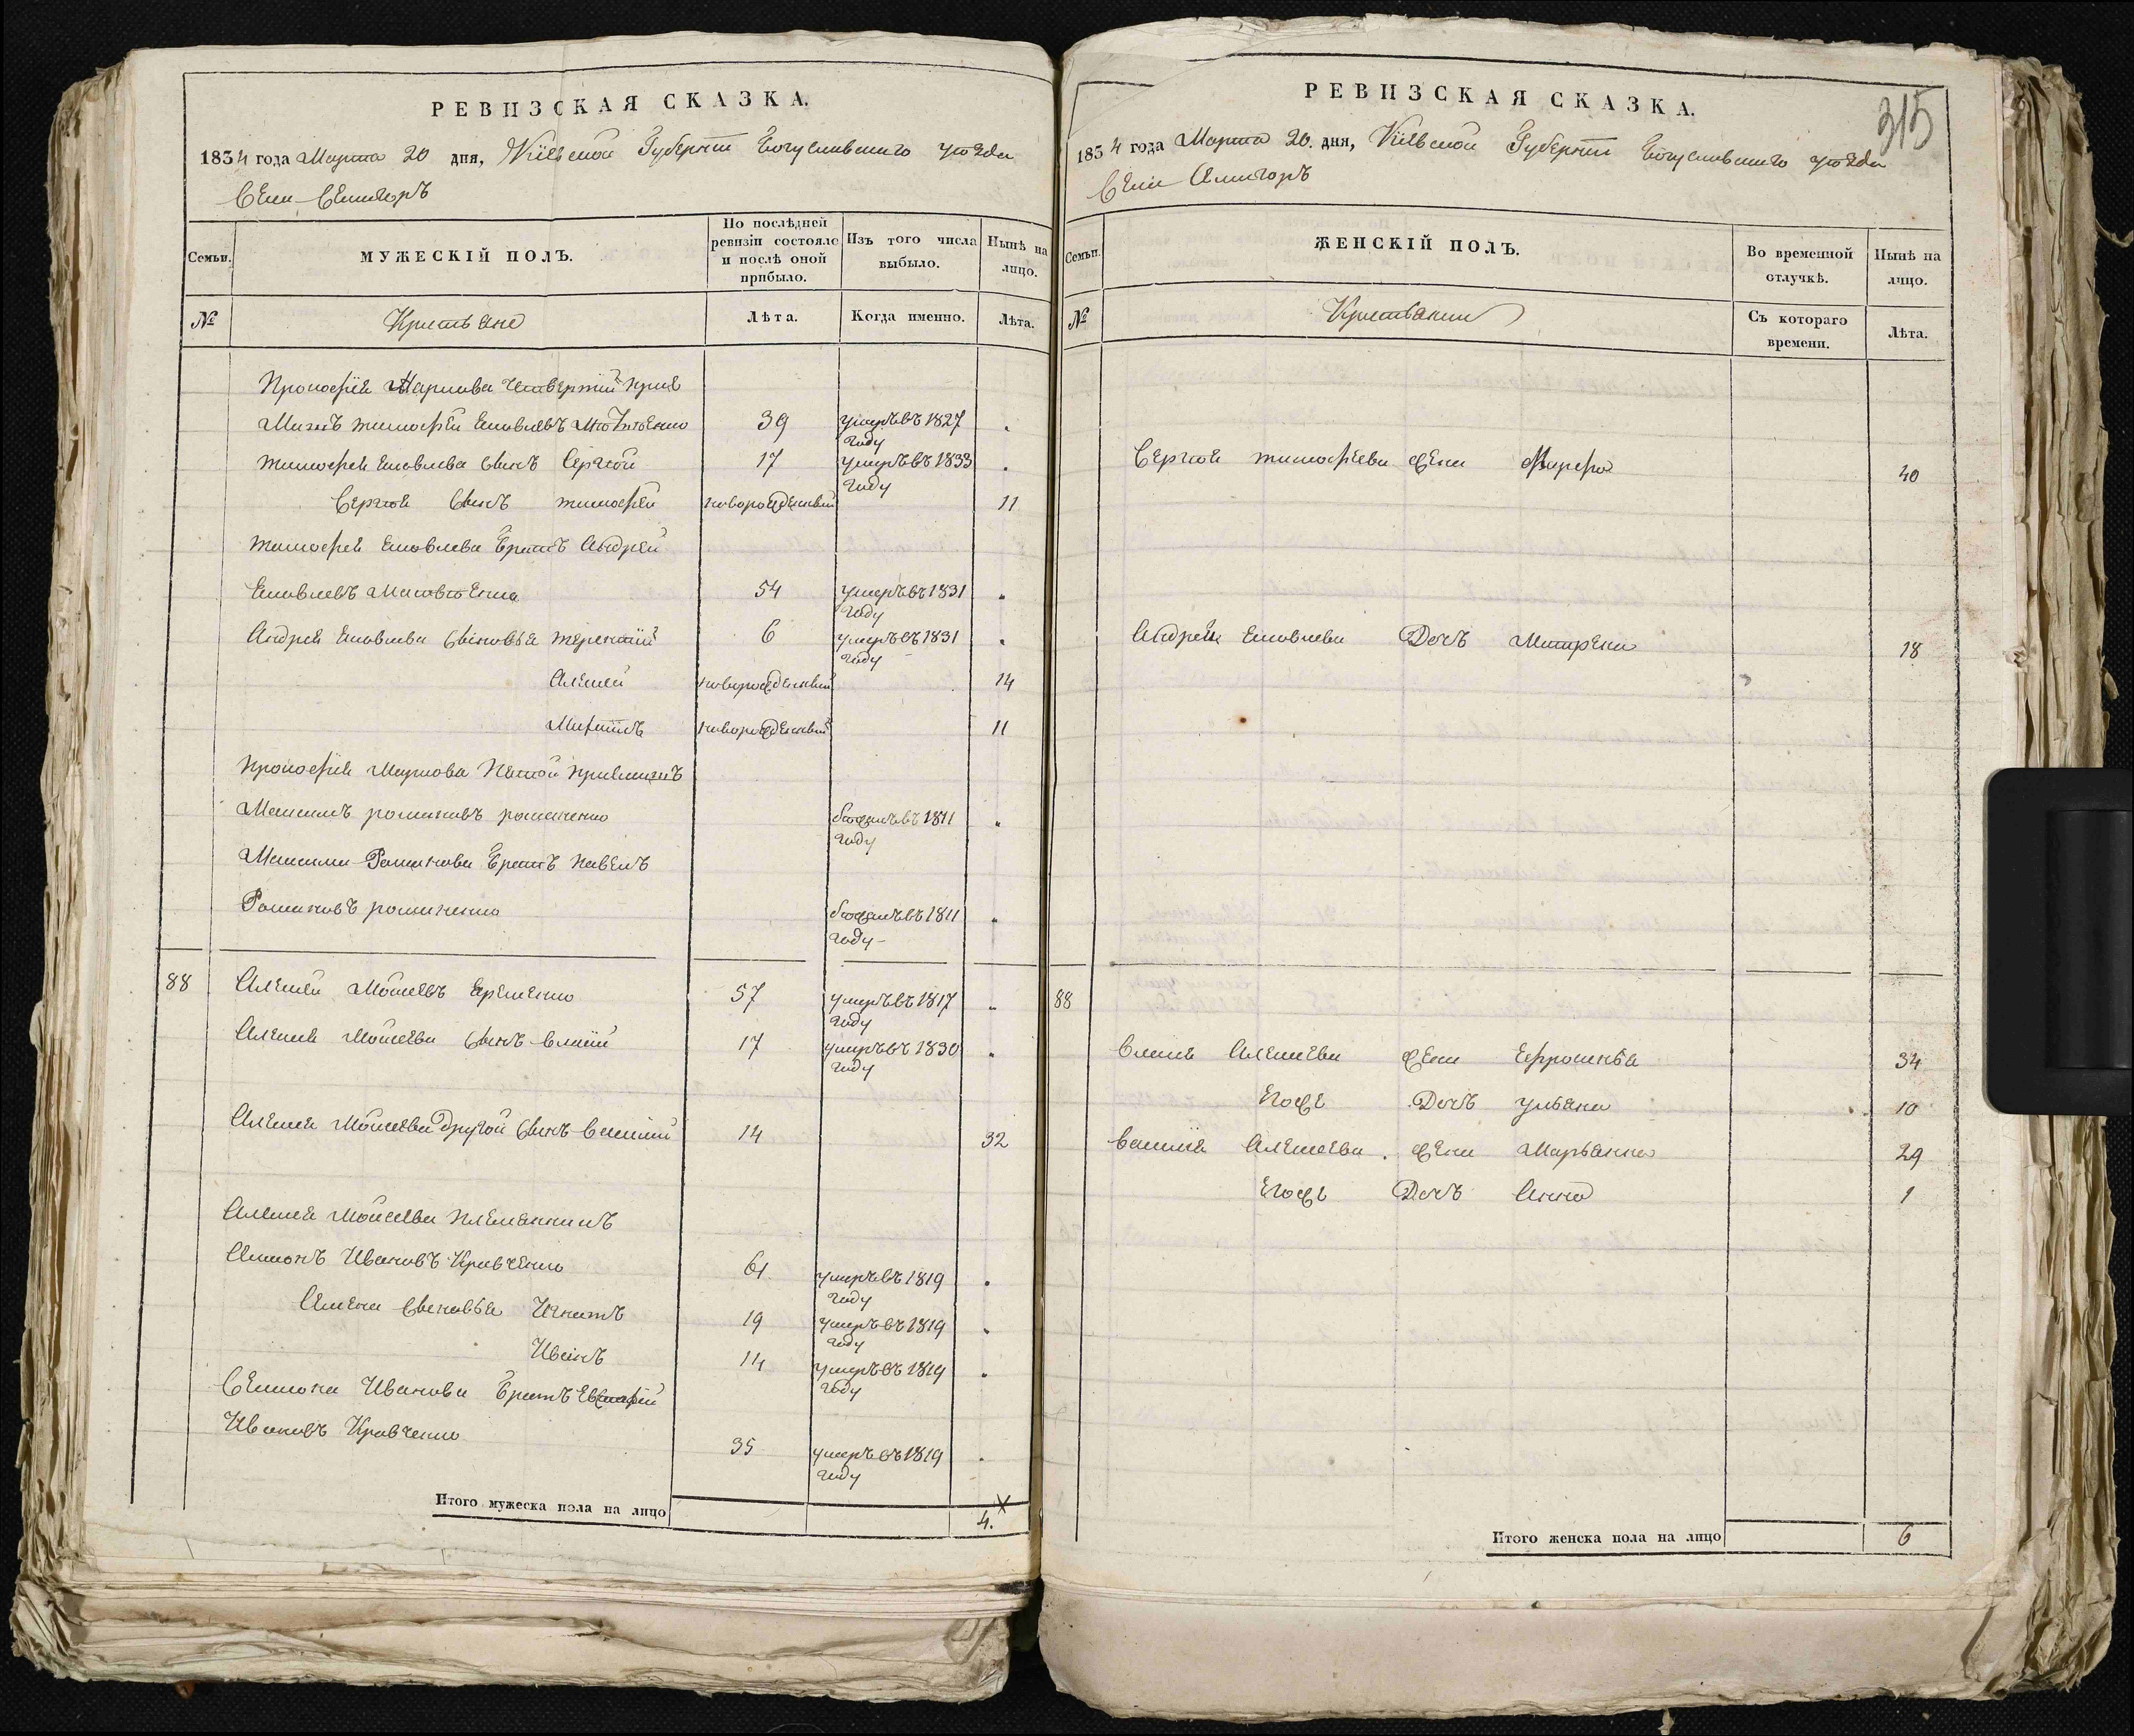 РЕВИЗСКАЯ СКАЗКА.
1834 года Марта 20 дня, Кіевской Губерніи Богуславскаго уезда
Села Селигоръ
Семьи.
МУЖЕСКІЙ ПОЛЪ.
По послѣдней ревизіи состояло и послѣ оной прибыло.
Изъ того числа выбыло.
Нынѣ на лицо.
№
Крестьяне
Лѣта.
Когда именно.
Лѣта.
Прокофія Маркова четвертій
Тимофей Яковлевъ 39 умеръ въ 1827 году
Тимофея Яковлева сынъ Сергѣй 17 умеръ въ 1833 году
Сергѣя сынъ Тимофей новорожденный 11
Тимофея Яковлева братъ Андрей
Яковлевъ 54 умеръ въ 1831 году
Андрея Яковлева сыновья Терентій 6 умеръ въ 1831 году
Алексей новорожденный 14
Михаилъ новорожденный 11
Прокофія Маркова пятой
Максимъ романовъ романенко бежалъ въ 1811 году
Максима Романова братъ Павелъ
Романовъ романенко бежалъ въ 1811 году
88 Алексей Мойсеевъ Яременко 57 умеръ въ 1817 году
Алексея Мойсеева сынъ Власій 17 умеръ въ 1830 году
Алексея Мойсеева другой сынъ Василій 14 32
Алексея Мойсеева племянникъ
Симонъ Ивановъ Кравченко 61 умеръ въ 1819 году
сыновья Игнатъ 19 умеръ въ 1819 году
Иванъ 14 умеръ въ 1819 году
Семиона Иванова братъ
Ивановъ Кравченко 35 умеръ въ 1819 году
Итого мужеска пола на лицо 4.
315
РЕВИЗСКАЯ СКАЗКА.
1834 года Марта 20. дня, Кіевской Губерніи Богуславскаго уезда
Села
Семьи.
ЖЕНСКІЙ ПОЛЪ.
Во временной отлучкѣ.
Нынѣ на лицо.
№
Крестьянки
Съ котораго времени.
Лѣта.
Сергѣя Тимофеева жена Марфа 40
Андрея Яковлева Дочь Митрена 18
88
Власія Алексеева жена Ефросинья 34
Егоже Дочь Ульяна 10
Василія Алексеева жена Марьянна 29
Егоже Дочь Анна 1
Итого женска пола на лицо 6